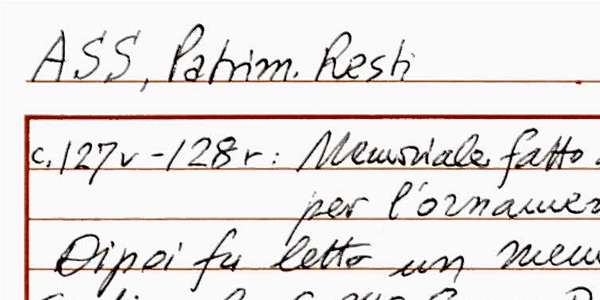 ASS, Patrim. Resti
c. 127v - 128r: Memoriale fatto
per l'ornamen
Dipoi fu letto un mem